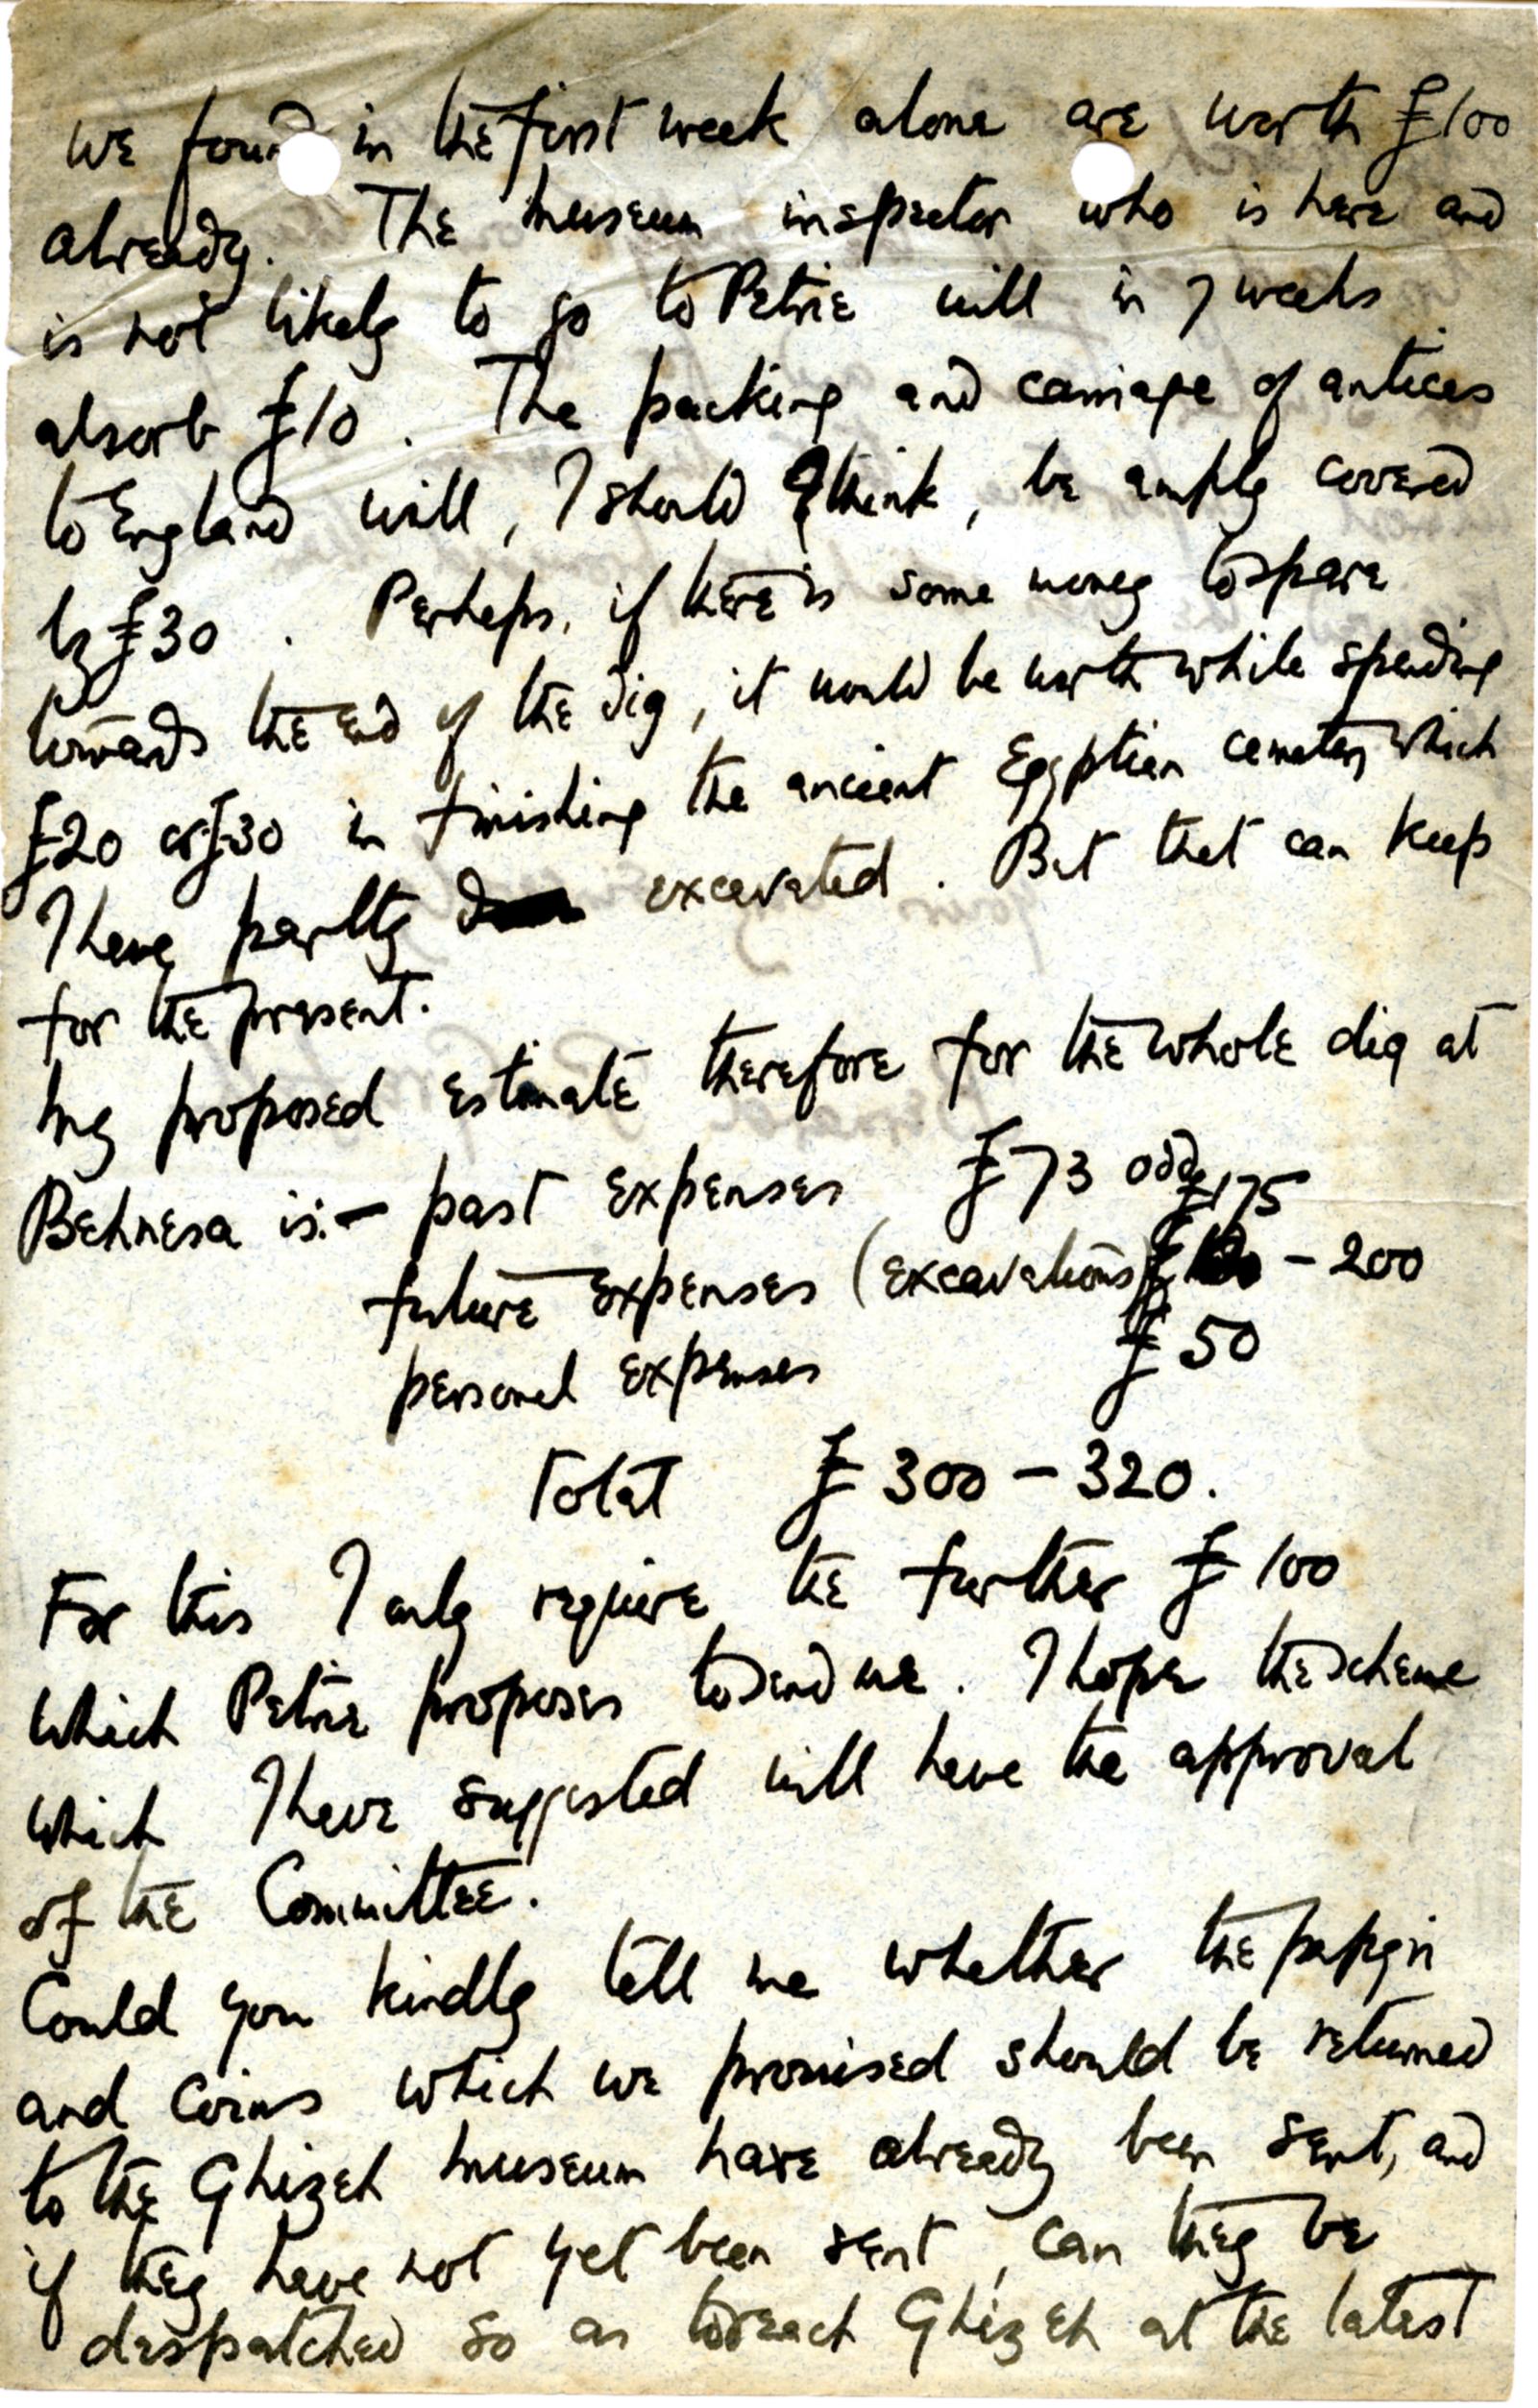 we found in the first week alone are worth £100
already. The museum inspector who is here and
is not likely to go to Petrie will in 7 weeks
absorb £10. The packing and carriage of anticas
to England will, I should think, be amply covered
by £30. Perhaps, if there is some money to spare
towards the end of the dig, it would be worth while spending
£20 or £30 in finishing the ancient Egyptian cemetery which
I have partly excavated. But that can keep
for the present.
My proposed estimate therefore for the whole dig at
Behnesa is:— past expenses £73 odd
£175
future expenses (excavations) £ – 200
personal expenses £50
Total £300 – 320.
For this I only require the further £100
which Petrie proposes to send me. I hope the scheme
which I have suggested will have the approval
of the Committee.
Could you kindly tell me whether the papyri
and coins which we promised should be returned
to the Ghizeh museum have already been sent, and
if they have not yet been sent, can they be
despatched so as to reach Ghizeh at the latest